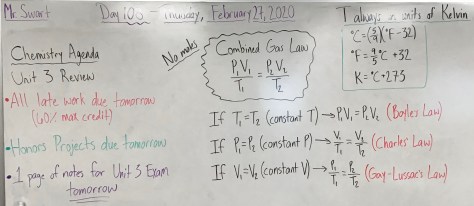 Mr. Swart
Day 106 - Thursday, February 27, 2020
T always in units of Kelvin
Chemistry Agenda
Unit 3 Review
• All late work due tomorrow
(60% max credit)
• Honors Projects due tomorrow
• 1 page of notes for Unit 3 Exam
tomorrow
No moles
Combined Gas Law
P₁V₁/T₁ = P₂V₂/T₂
°C=(5/9)(°F-32)
°F=9/5°C+32
K=°C+273
If T₁=T₂ (constant T) → P₁V₁=P₂V₂ (Boyles Law)
If P₁=P₂ (constant P) → V₁/T₁=V₂/T₂ (Charles' Law)
If V₁=V₂ (constant V) → P₁/T₁=P₂/T₂ (Gay-Lussac's Law)